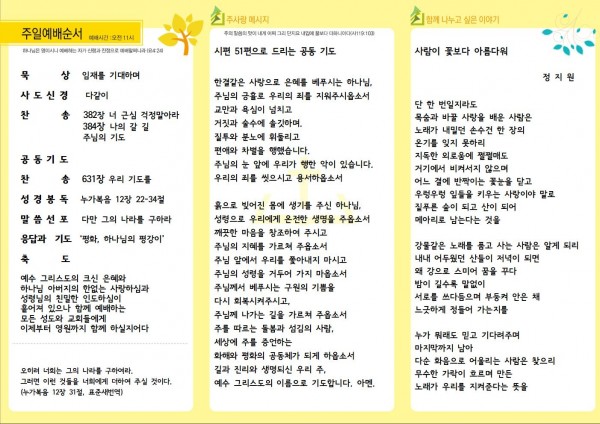 주일예배순서 예배시간 : 오전 11시
하나님은 영이시니 예배하는 자가 신령과 진정으로 예배할찌니라 (요4:24)
묵 상 임재를 기대하며
사도신경 다같이
찬 송 382장 너 근심 걱정말아라
384장 나의 갈 길
주님의 기도
공동기도
찬 송 631장 우리 기도를
성경봉독 누가복음 12장 22-34절
말씀선포 다만 그의 나라를 구하라
응답과 기도 "평화, 하나님의 평강이"
축 도
예수 그리스도의 크신 은혜와
하나님 아버지의 한없는 사랑하심과
성령님의 친밀한 인도하심이
흩어져 있으나 함께 예배하는
모든 성도와 교회들에게
이제부터 영원까지 함께 하실지어다
오히려 너희는 그의 나라를 구하여라.
그러면 이런 것들을 너희에게 더하여 주실 것이다.
(누가복음 12장 31절, 표준새번역)
주사랑 메시지
주의 말씀의 맛이 내게 어찌 그리 단지요 내입에 꿀보다 더하니이다(시119:103)
시편 51편으로 드리는 공동 기도
한결같은 사랑으로 은혜를 베푸시는 하나님,
주님의 긍휼로 우리의 죄를 지워주시옵소서
교만과 욕심이 넘치고
거짓과 술수에 솔깃하며,
질투와 분노에 휘둘리고
편애와 차별을 행했습니다.
주님의 눈 앞에 우리가 행한 악이 있습니다.
우리의 죄를 씻으시고 용서하옵소서
흙으로 빚어진 몸에 생기를 주신 하나님,
성령으로 우리에게 온전한 생명을 주옵소서
깨끗한 마음을 창조하여 주시고
주님의 지혜를 가르쳐 주옵소서
주님 앞에서 우리를 쫓아내지 마시고
주님의 성령을 거두어 가지 마옵소서
주님께서 베푸시는 구원의 기쁨을
다시 회복시켜주시고,
주님께 나가는 길을 가르쳐 주옵소서
주를 따르는 돌봄과 섬김의 사람,
세상에 주를 증언하는
화해와 평화의 공동체가 되게 하옵소서
길과 진리와 생명되신 우리 주,
예수 그리스도의 이름으로 기도합니다. 아멘.
함께 나누고 싶은 이야기
사람이 꽃보다 아름다워
정 지 원
단 한 번일지라도
목숨과 바꿀 사랑을 배운 사람은
노래가 내밀던 손수건 한 장의
온기를 잊지 못하리
지독한 외로움에 쩔쩔매도
거기에서 비켜서지 않으며
어느 결에 반짝이는 꽃눈을 닫고
우렁우렁 잎들을 키우는 사랑이야 말로
짙푸른 숲이 되고 산이 되어
메아리로 남는다는 것을
강물같은 노래를 품고 사는 사람은 알게 되리
내내 어두웠던 산들이 저녁이 되면
왜 강으로 스미어 꿈을 꾸다
밤이 길수록 말없이
서로를 쓰다듬으며 부둥켜 안은 채
느긋하게 정들어 가는지를
누가 뭐래도 믿고 기다려주며
마지막까지 남아
다순 화음으로 어울리는 사람은 찾으리
무수한 가락이 흐르며 만든
노래가 우리를 지켜준다는 뜻을